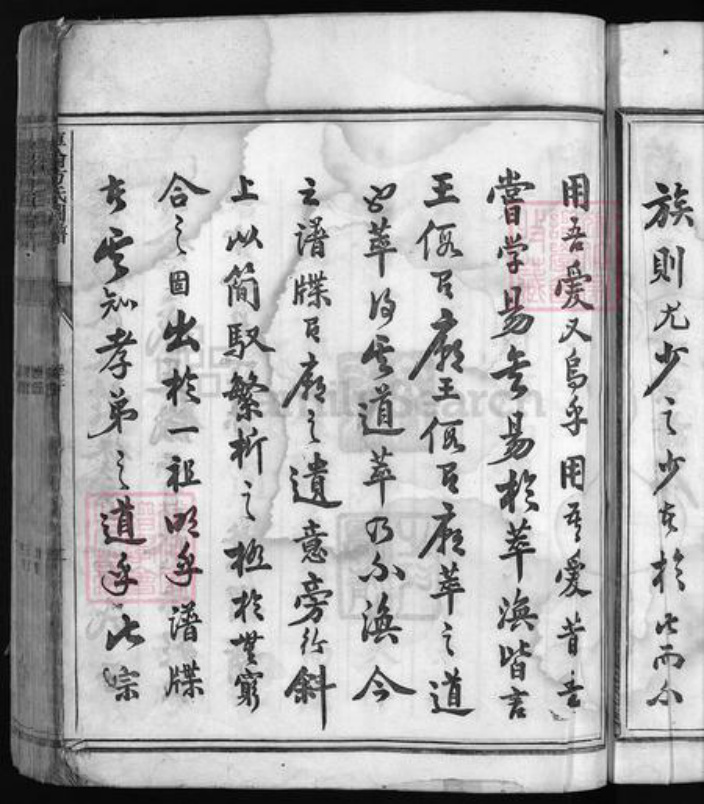 族則尤少之少者於此而不
用吾愛又烏乎用吾愛昔吾
嘗学易矣易於萃渙皆言
王假有廟王假有廟萃之道
也萃得其道萃乃不渙今
之譜牒有廟之遺意旁行斜
上以簡馭繁析之極於無窮
合之圖出於一祖明乎譜牒
者其知孝弟之道乎此宗
FamilySearch